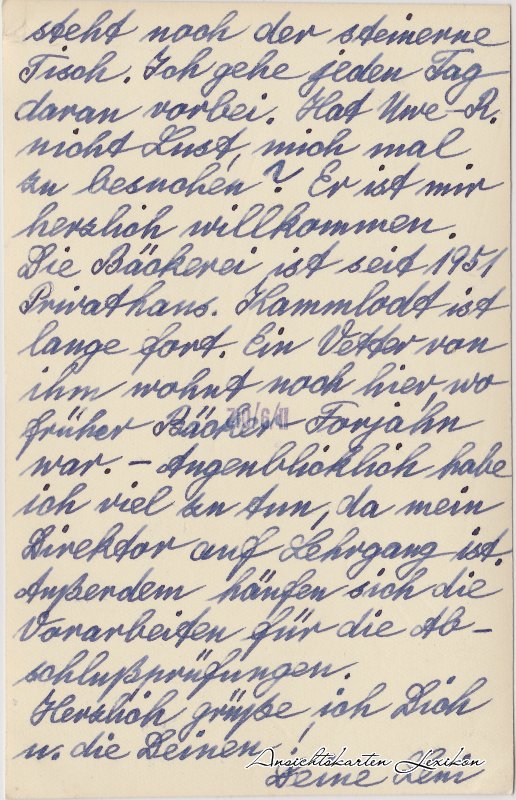 steht noch der steinerne
Tisch. Ich gehe jeden Tag
daran vorbei. Hat Uwe-R.
nicht Lust, mich mal
zu besuchen? Er ist mir
herzlich willkommen.
Die Bäckerei ist seit 1951
Privathaus. Hammlodt ist
lange fort. Ein Vetter von
ihm wohnt noch hier, wo
früher Bäcker Torjahn
war. – Augenblicklich habe
ich viel zu tun, da mein
Direktor auf Lehrgang ist.
Außerdem häufen sich die
Vorarbeiten für die Ab-
schlußprüfungen.
Herzlich grüße ich Dich
u. die Deinen
Ansichtskarten Lexikon
Deine